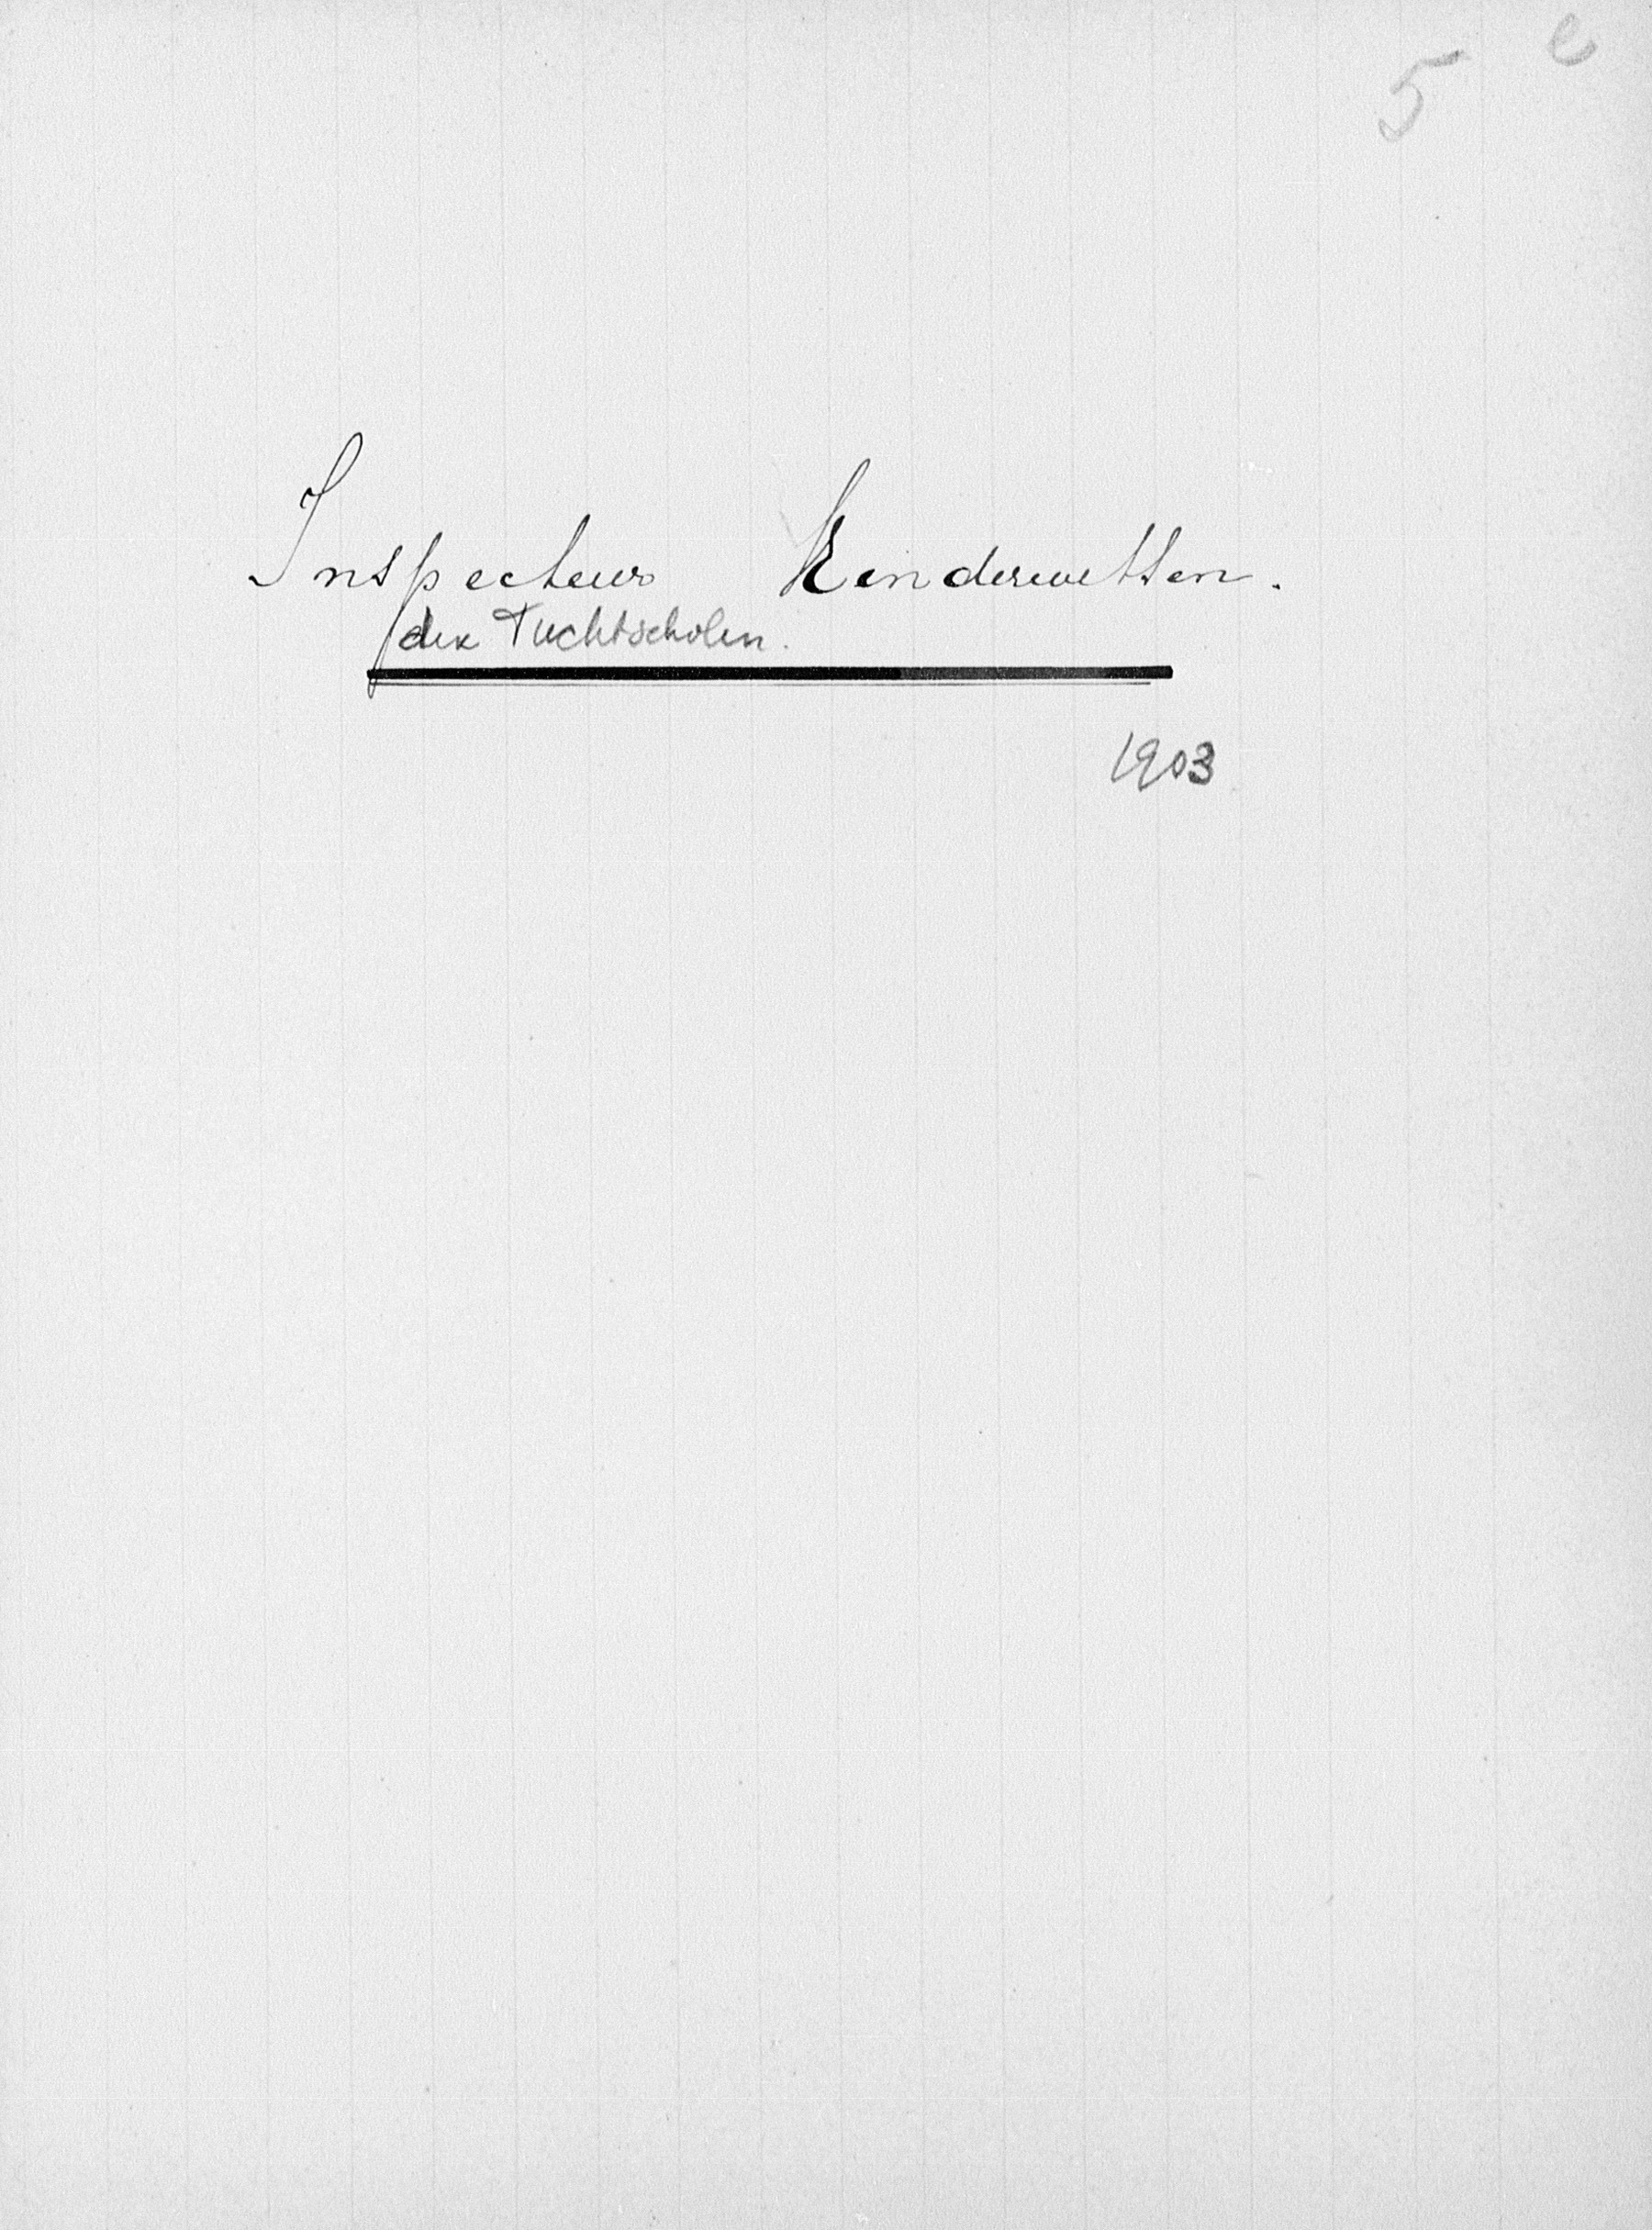 5 e
Inspecteur Kinderwetten.
der Tuchtscholen.
1903